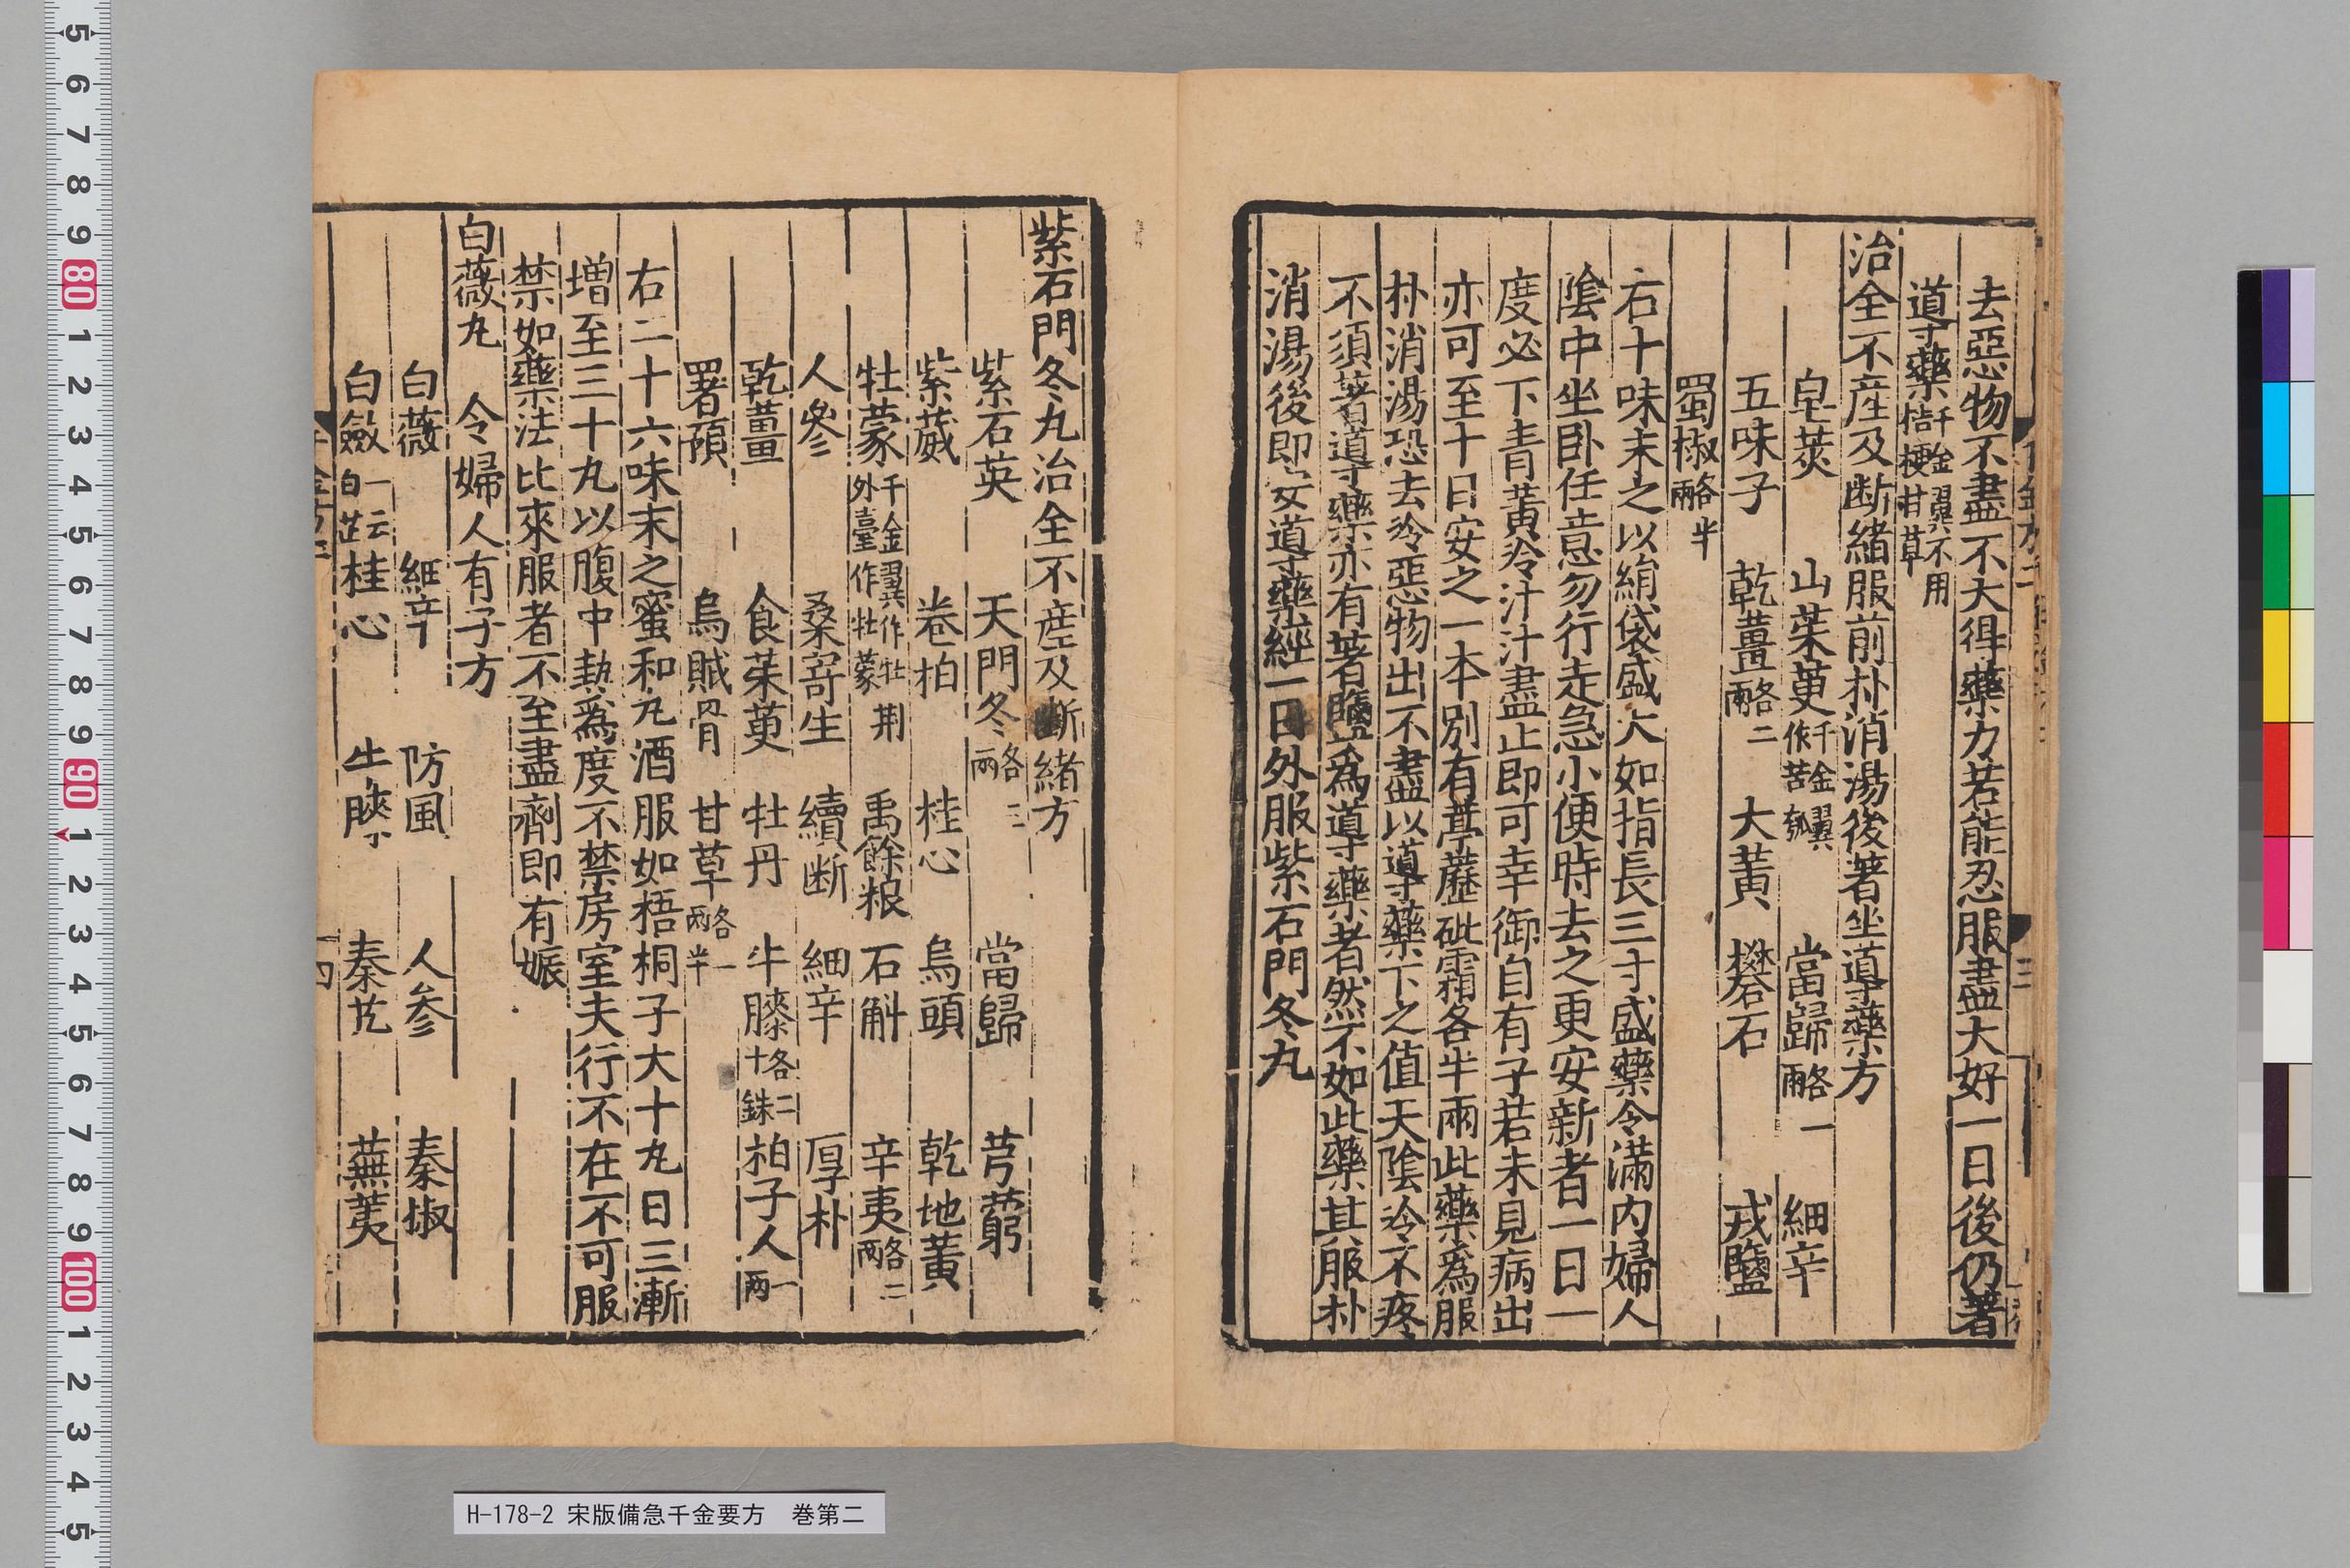 去惡物不盡不大得藥力若能忍服盡大好一日後仍著
導藥千金翼不用桔梗甘草
治全不產及斷緒服前朴消湯後著坐導藥方
皂莢 山茱萸千金翼作苦瓠 當歸各一兩 細辛
五味子 乾薑各二兩 大黃 礬石 戎鹽
蜀椒各半兩
右十味末之以絹袋盛大如指長三寸盛藥令滿內婦人
陰中坐臥任意勿行走急小便時去之更安新者一日一
度必下青黃冷汁汁盡止即可幸御自有子若未見病出
亦可至十日安之一本別有葶藶砒霜各半兩此藥為服
朴消湯恐去冷惡物出不盡以導藥下之值天陰冷不疼
不須著導藥亦有著鹽為導藥者然不如此藥其服朴
消湯後即安導藥經一日外服紫石門冬丸
紫石門冬丸治全不產及斷緒方
紫石英 天門冬各三兩 當歸 芎藭
紫葳 卷柏 桂心 烏頭 乾地黃
牡蒙千金翼作牡荊外臺作牡蒙 禹餘粮 石斛 辛夷各二兩
人參 桑寄生 續斷 細辛 厚朴
乾薑 食茱萸 牡丹 牛膝各二十銖 柏子人一兩
署預 烏賊骨 甘草各一兩半
右二十六味末之蜜和丸酒服如梧桐子大十丸日三漸
增至三十丸以腹中熱為度不禁房室夫行不在不可服
禁如藥法比來服者不至盡劑即有娠
白薇丸 令婦人有子方
白薇 細辛 防風 人參 秦椒
白斂一云白芷 桂心 牛膝 秦艽 蕪荑
H-178-2 宋版備急千金要方 巻第二